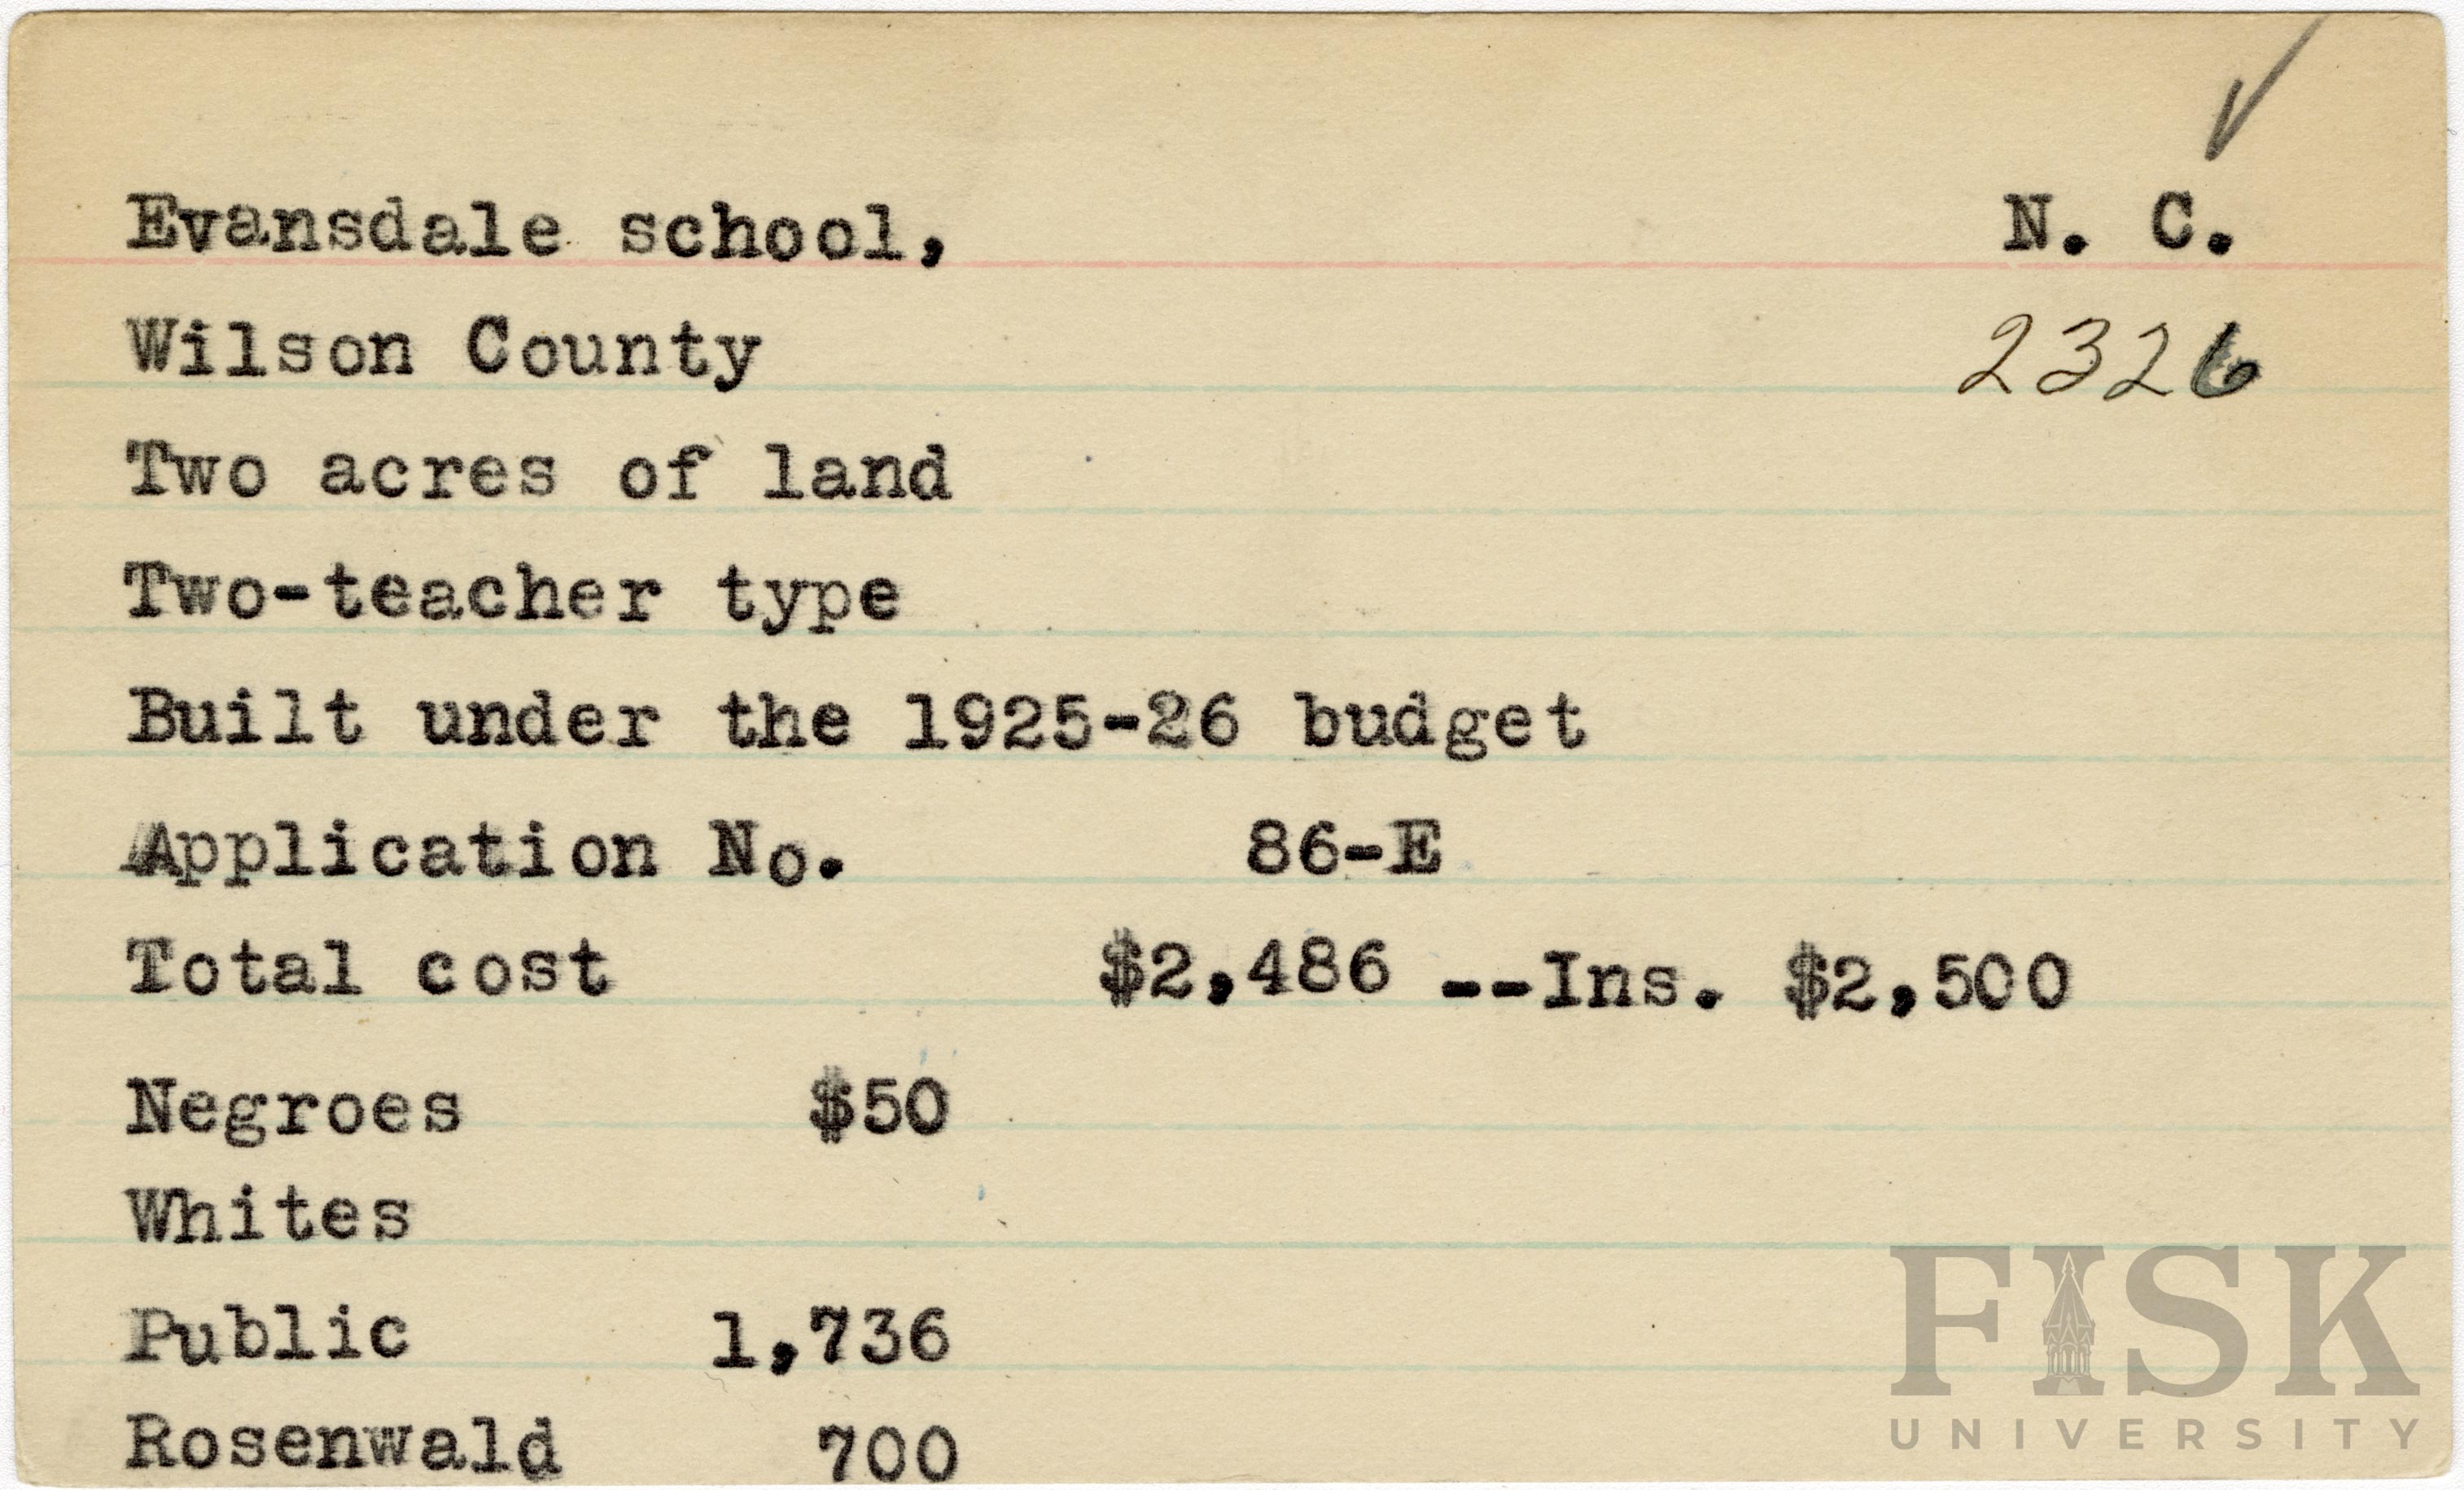 Evansdale school, N. C.
Wilson County 2326
Two acres of land
Two-teacher type
Built under the 1925-26 budget
Application No. 86-E
Total cost $2,486 --Ins. $2,500
Negroes $50
Whites
Public 1,736
Rosenwald 700
FISK
UNIVERSITY